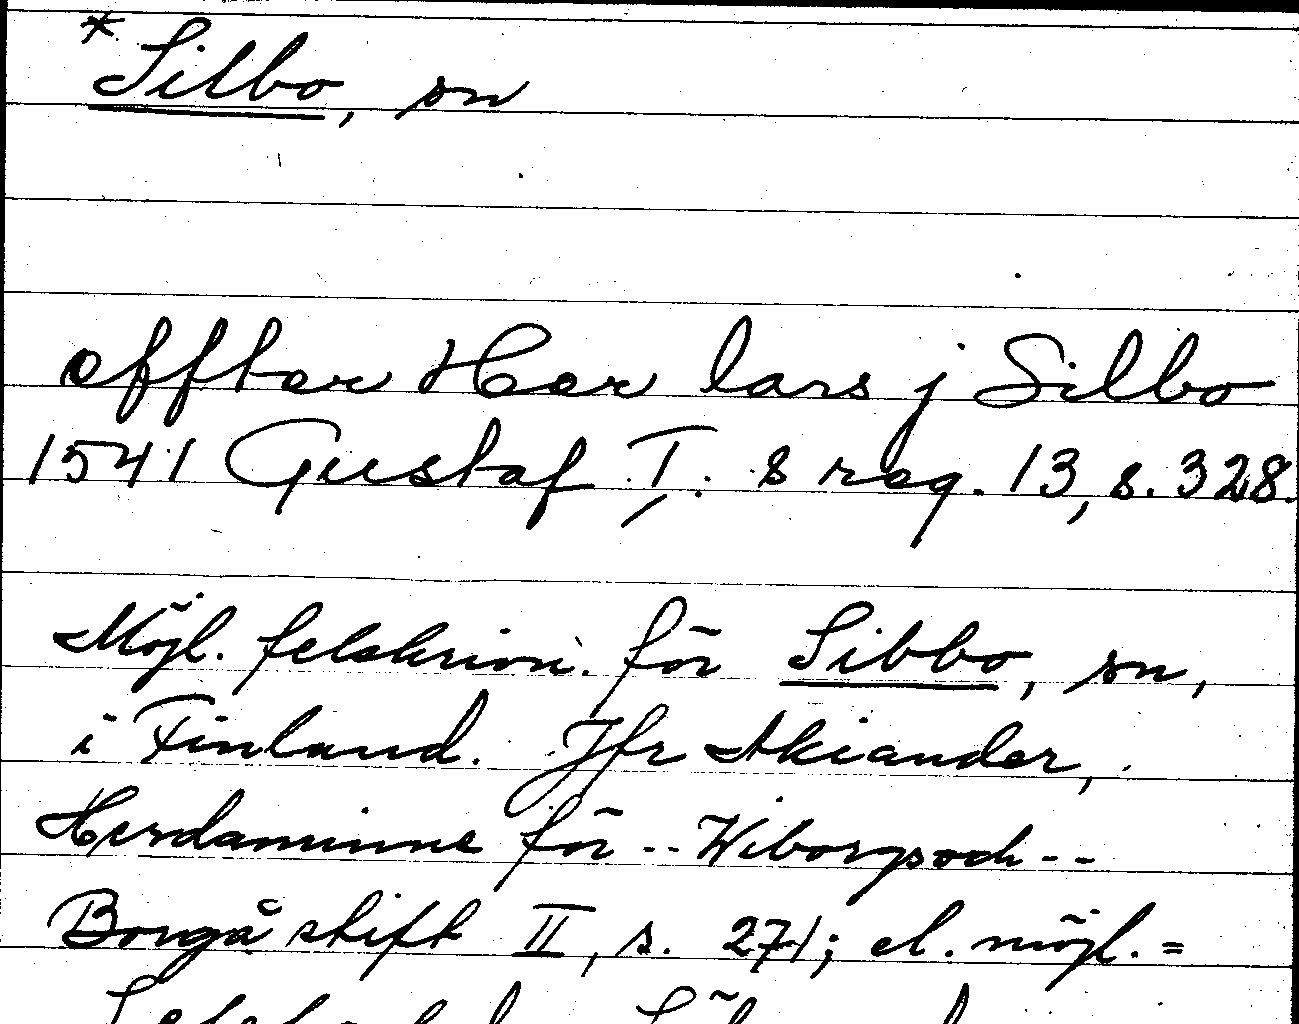 *Silbo, sn
effter Her lars j Silbo
1541 Gustaf I:s reg. 13, s. 328.
Möjl. felskrivn. för Sibbo, sn,
i Finland. Jfr Akiander,
Herdaminne för -- Wiborgs och --
Borgå stift II, s. 271; el. möjl. =